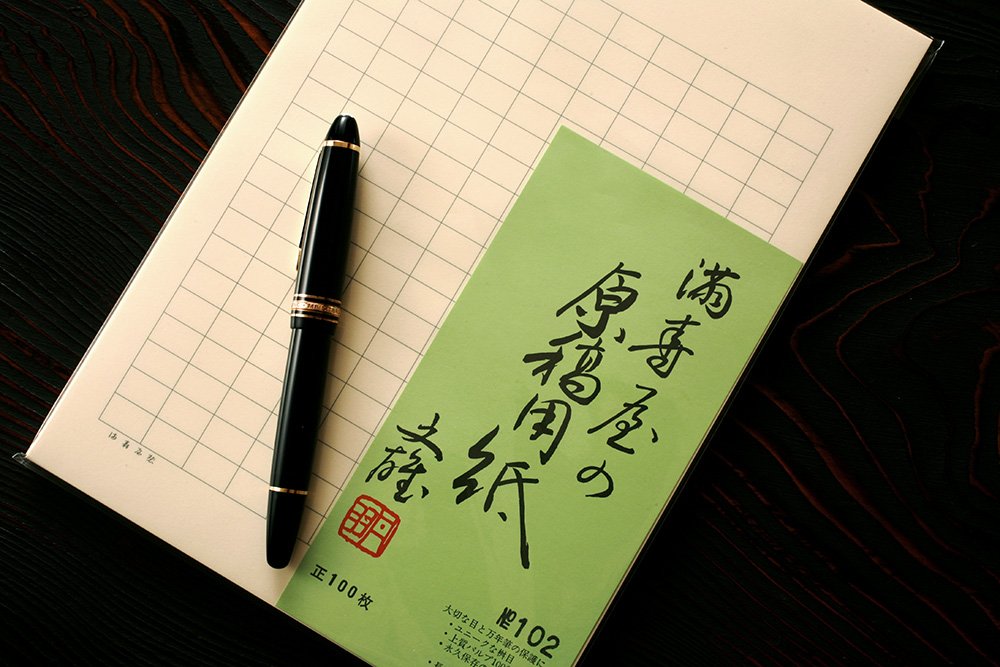 満寿屋の
原稿用紙
文雄
丹羽
正100枚
№102
大切な目と万年筆の保護に
・ユニークな桝目
・上質パルプ100
・永久保存の
満寿屋製